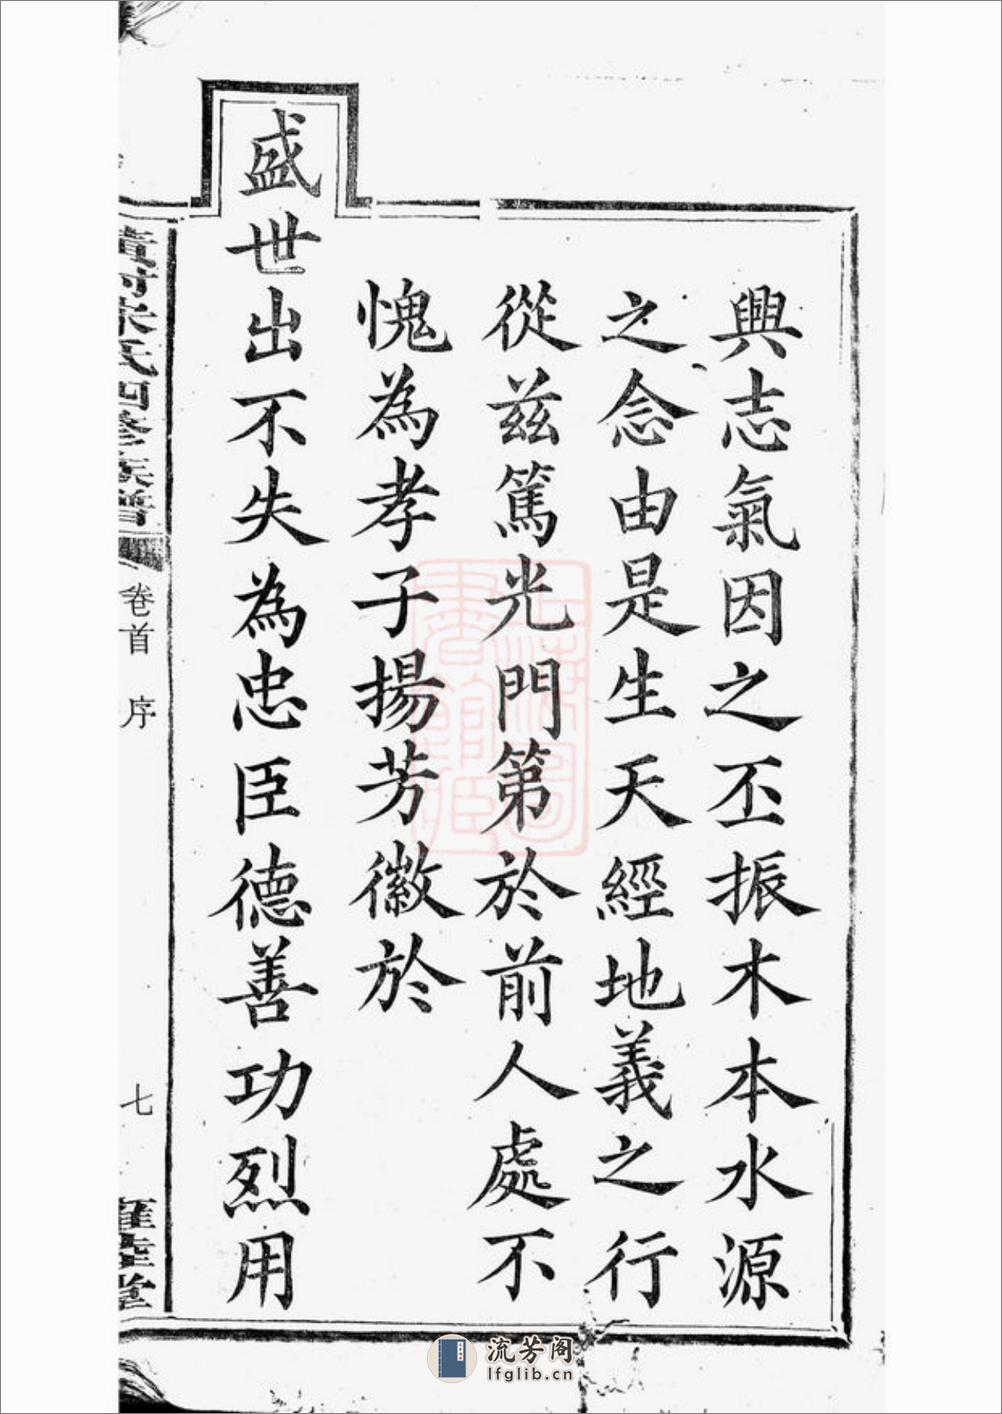 興志氣因之丕振木本水源
之念由是生天經地義之行
從茲篤光門第於前人處不
愧為孝子揚芳徽於
盛世出不失為忠臣德善功烈用
氏四修族譜
卷首 序
七
堂
流芳阁
lfglib.cn